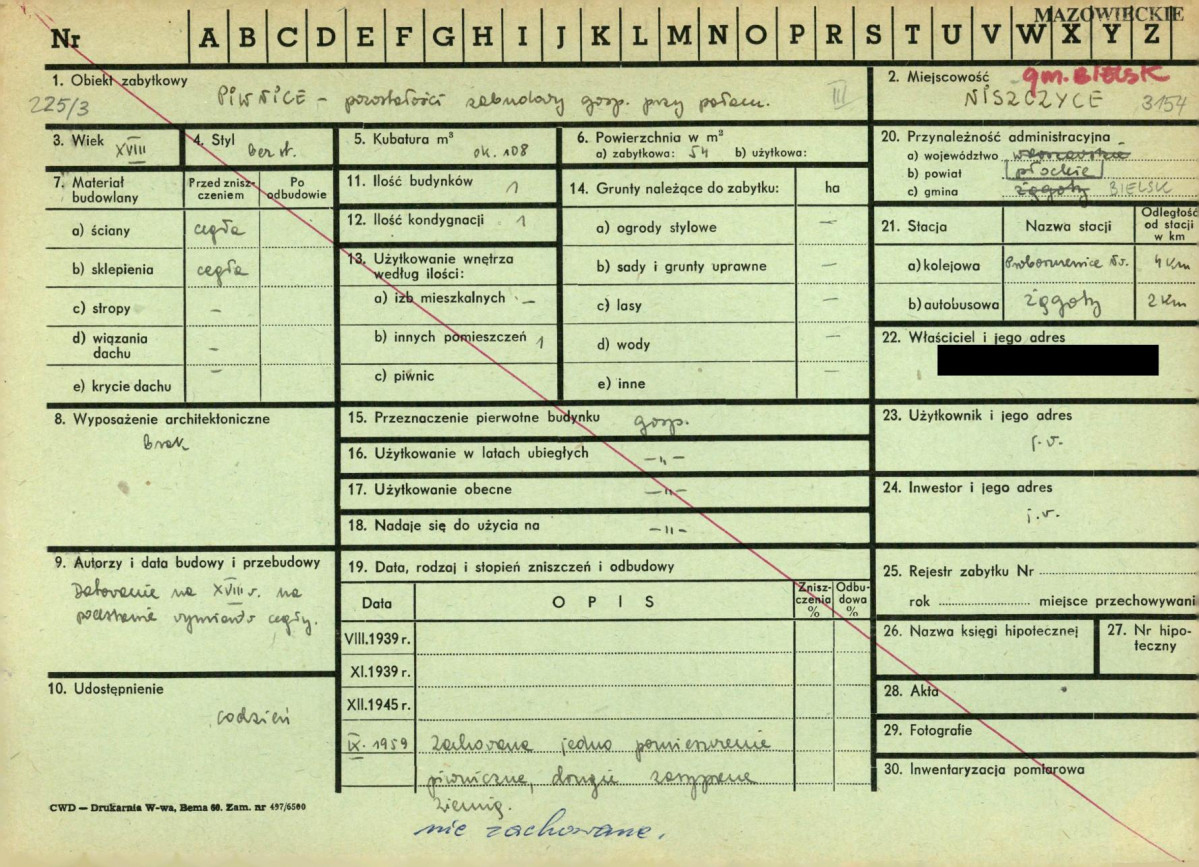 MAZOWIECKIE
Nr A B C D E F G H I J K L M N O P R S T U V W X Y Z
1. Obiekt zabytkowy
PIWNICE – pozostałości zabudowy gosp. przy pałacu.
III
225/3
2. Miejscowość gm. BIELSK
NISZCZYCE 3154
3. Wiek XVIII
4. Styl bez st.
5. Kubatura m³ ok. 108
6. Powierzchnia w m²
a) zabytkowa: 54 b) użytkowa:
7. Materiał budowlany
Przed zniszczeniem
Po odbudowie
a) ściany cegła
b) sklepienia cegła
c) stropy –
d) wiązania dachu –
e) krycie dachu –
8. Wyposażenie architektoniczne
brak
9. Autorzy i data budowy i przebudowy
Datowanie na XVIII w. na
podstawie wymiarów cegły.
10. Udostępnienie
codzień
11. Ilość budynków 1
12. Ilość kondygnacji 1
13. Użytkowanie wnętrza
według ilości:
a) izb mieszkalnych –
b) innych pomieszczeń 1
c) piwnic
14. Grunty należące do zabytku: ha
a) ogrody stylowe –
b) sady i grunty uprawne –
c) lasy –
d) wody –
e) inne –
15. Przeznaczenie pierwotne budynku gosp.
16. Użytkowanie w latach ubiegłych –"–
17. Użytkowanie obecne –"–
18. Nadaje się do użycia na –"–
19. Data, rodzaj i stopień zniszczeń i odbudowy
Data OPIS Zniszczenia % Odbudowa %
VIII.1939 r.
XI.1939 r.
XII.1945 r.
IX. 1959 Zachowane jedno pomieszczenie
piwniczne, drugie zasypane
ziemią.
nie zachowane.
20. Przynależność administracyjna
a) województwo warszawskie
b) powiat płockie
c) gmina Zągoty BIELSK
21. Stacja Nazwa stacji Odległość od stacji w km
a) kolejowa 4 km
b) autobusowa Zągoty 2 km
22. Właściciel i jego adres
23. Użytkownik i jego adres
j.w.
24. Inwestor i jego adres
j.w.
25. Rejestr zabytku Nr
rok miejsce przechowywani
26. Nazwa księgi hipotecznej
27. Nr hipoteczny
28. Akta
29. Fotografie
30. Inwentaryzacja pomiarowa
CWD — Drukarnia W-wa, Bema 60. Zam. nr 497/6500